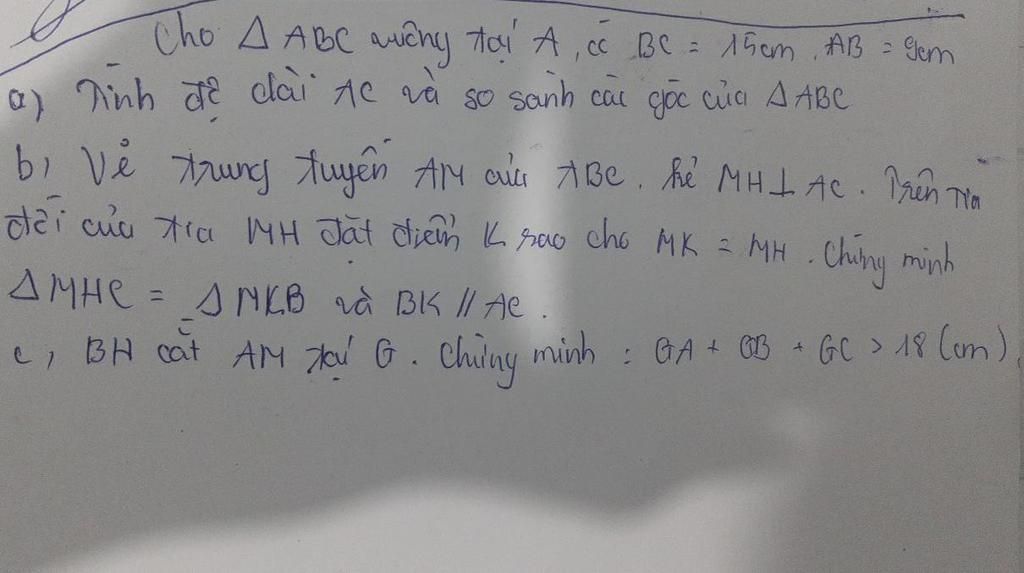 Cho Δ ABC vuông tại A, có BC = 15cm, AB = 9cm
a) Tính độ dài AC và so sánh các góc của Δ ABC
b) Vẽ trung tuyến AM của ABC. Kẻ MH ⊥ AC. Trên tia
đối của tia MH đặt điểm K sao cho MK = MH. Chứng minh
Δ MHC = Δ MKB và BK // AC.
c) BH cắt AM tại G. Chứng minh: GA + GB + GC > 18 (cm)